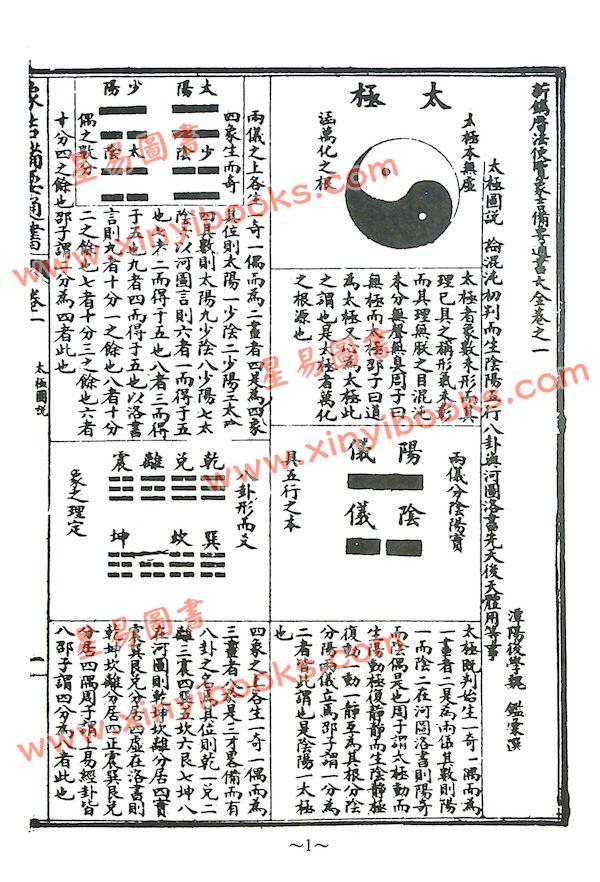 新鐫曆法便覽象吉備要通書大全卷之一
潭陽後學魏 鑑彙選
太極圖說 論混沌初判而生陰陽五行八卦與河圖洛書先天後天體用等事
太極
太極本無虛
涵萬化之根
太極者象數未形而其
理已具之稱形氣未彰
而其理無朕之目混沌
未分無聲無臭周子曰
無極而太極邵子曰道
為太極又心為太極此
之謂也是太極者萬化
之根源也
兩儀分陰陽實
陽儀
陰儀
具五行之本
太極既判始生一奇一偶而為
一畫者二是為兩儀其數則陽
一而陰二在河圖洛書則陽奇
而陰偶是也周子謂太極動而
生陽動極復靜靜而生陰靜極
復動一動一靜互為其根分陰
分陽兩儀立焉邵子謂一分為
二者皆此謂也是陰陽一太極
也
太陽
少陰
少陽
太陰
四象生而奇
偶之數分
兩儀之上各生一奇一偶而為二畫者四是為四象
其位則太陽一少陰二少陽三太陰
四其數則太陽九少陰八少陽七太
陰六以河圖言則六者一而得于五
也七者二而得于五也八者三而得
于五也九者四而得于五也以洛書
言則九者十分一之餘也八者十分
二之餘也七者十分三之餘也六者
十分四之餘也邵子謂二分為四者此也
八卦形而爻
乾兌離震
巽坎坤
象之理定
四象之上各生一奇一偶而為
三畫者八於是三才畧備而有
八卦之名其位則乾一兌二
離三震四巽五坎六艮七坤八
在河圖則乾坤坎離分居四實
震巽艮兌分居四虛在洛書則
乾坤坎離分居四正震巽艮兌
分居四隅周子謂上易經卦皆
八邵子謂四分為八者此也
象吉備要通書
卷一
太極圖說
星易圖書
www.xinyibooks.com
星易圖書
www.xinyibooks.com
星易圖書
www.xinyibooks.com
星易圖書
www.xinyibooks.com
~1~